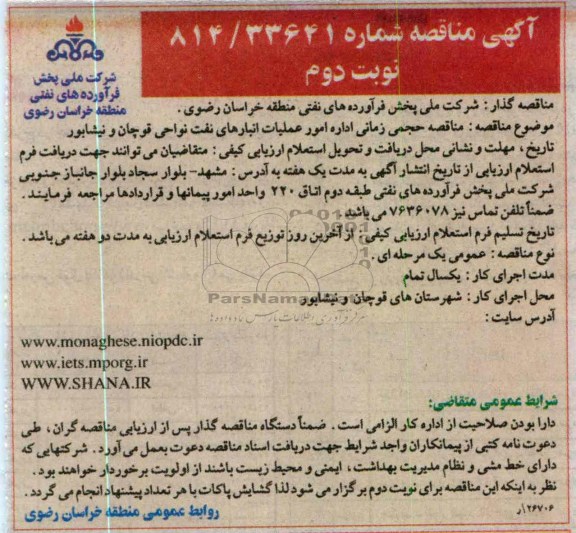 آگهی مناقصه شماره ۸۱۴/۳۳۶۴۱
نوبت دوم
شرکت ملی پخش
فرآورده های نفتی
منطقه خراسان رضوی
مناقصه گذار : شرکت ملی پخش فرآورده های نفتی منطقه خراسان رضوی .
موضوع مناقصه : مناقصه حجمی زمانی اداره امور عملیات انبارهای نفت نواحی قوچان و نیشابور
تاریخ ، مهلت و نشانی محل دریافت و تحویل استعلام ارزیابی کیفی : متقاضیان می توانند جهت دریافت فرم
استعلام ارزیابی از تاریخ انتشار آگهی به مدت یک هفته به آدرس : مشهد- بلوار سجاد بلوار جانباز جنوبی
شرکت ملی پخش فرآورده های نفتی طبقه دوم اتاق ۲۲۰ واحد امور پیمانها و قراردادها مراجعه فرمایند .
ضمناً تلفن تماس نیز ۷۶۳۶۰۷۸ می باشد .
تاریخ تسلیم فرم استعلام ارزیابی کیفی : از آخرین روز توزیع فرم استعلام ارزیابی به مدت دو هفته می باشد .
نوع مناقصه : عمومی یک مرحله ای .
مدت اجرای کار : یکسال تمام
محل اجرای کار : شهرستان های قوچان و نیشابور
آدرس سایت :
ParsNamadData
www.monaghese.niopdc.ir
www.iets.mporg.ir
WWW.SHANA.IR
شرایط عمومی متقاضی:
دارا بودن صلاحیت از اداره کار الزامی است . ضمناً دستگاه مناقصه گذار پس از ارزیابی مناقصه گران ، طی
دعوت نامه کتبی از پیمانکاران واجد شرایط جهت دریافت اسناد مناقصه دعوت بعمل می آورد . شرکتهایی که
دارای خط مشی و نظام مدیریت بهداشت ، ایمنی و محیط زیست باشند از اولویت برخوردار خواهند بود .
نظر به اینکه این مناقصه برای نوبت دوم برگزار می شود لذا گشایش پاکات با هر تعداد پیشنهاد انجام می گردد .
۲۶۷۰۶/ر
روابط عمومی منطقه خراسان رضوی